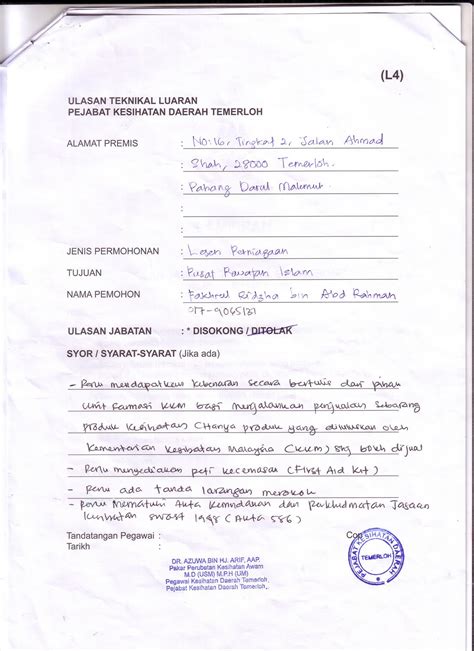 (L4)
ULASAN TEKNIKAL LUARAN
PEJABAT KESIHATAN DAERAH TEMERLOH
ALAMAT PREMIS : No:16, Tingkat 2, Jalan Ahmad
: Shah, 28000 Temerloh.
: Pahang Darul Makmur.
:
:
JENIS PERMOHONAN : Lesen Perniagaan
TUJUAN : Pusat Rawatan Islam
NAMA PEMOHON : Fakhrul Ridzha bin Abd Rahman
ULASAN JABATAN : * DISOKONG / DITOLAK
SYOR / SYARAT-SYARAT (Jika ada)
- Perlu mendapatkan kebenaran secara bertulis dari pihak
unit farmasi KKM bagi menjalankan penjualan sebarang
produk kesihatan (Hanya produk yang diluluskan oleh
Kementerian Kesihatan Malaysia (KKM) shj boleh dijual
- Perlu menyediakan peti kecemasan (First Aid Kit)
- Perlu ada tanda larangan merokok
- Perlu mematuhi Akta Kemudahan dan Perkhidmatan Jagaan
Kesihatan swasta 1998 (Akta 586)
Tandatangan Pegawai : Cop
Tarikh :
DR. AZUWA BIN HJ. ARIF, AAP.
Pakar Perubatan Kesihatan Awam
M.D (USM) M.P.H (UM)
Pegawai Kesihatan Daerah Temerloh,
Pejabat Kesihatan Daerah Temerloh,
PEJABAT KESIHATAN DAERAH
TEMERLOH